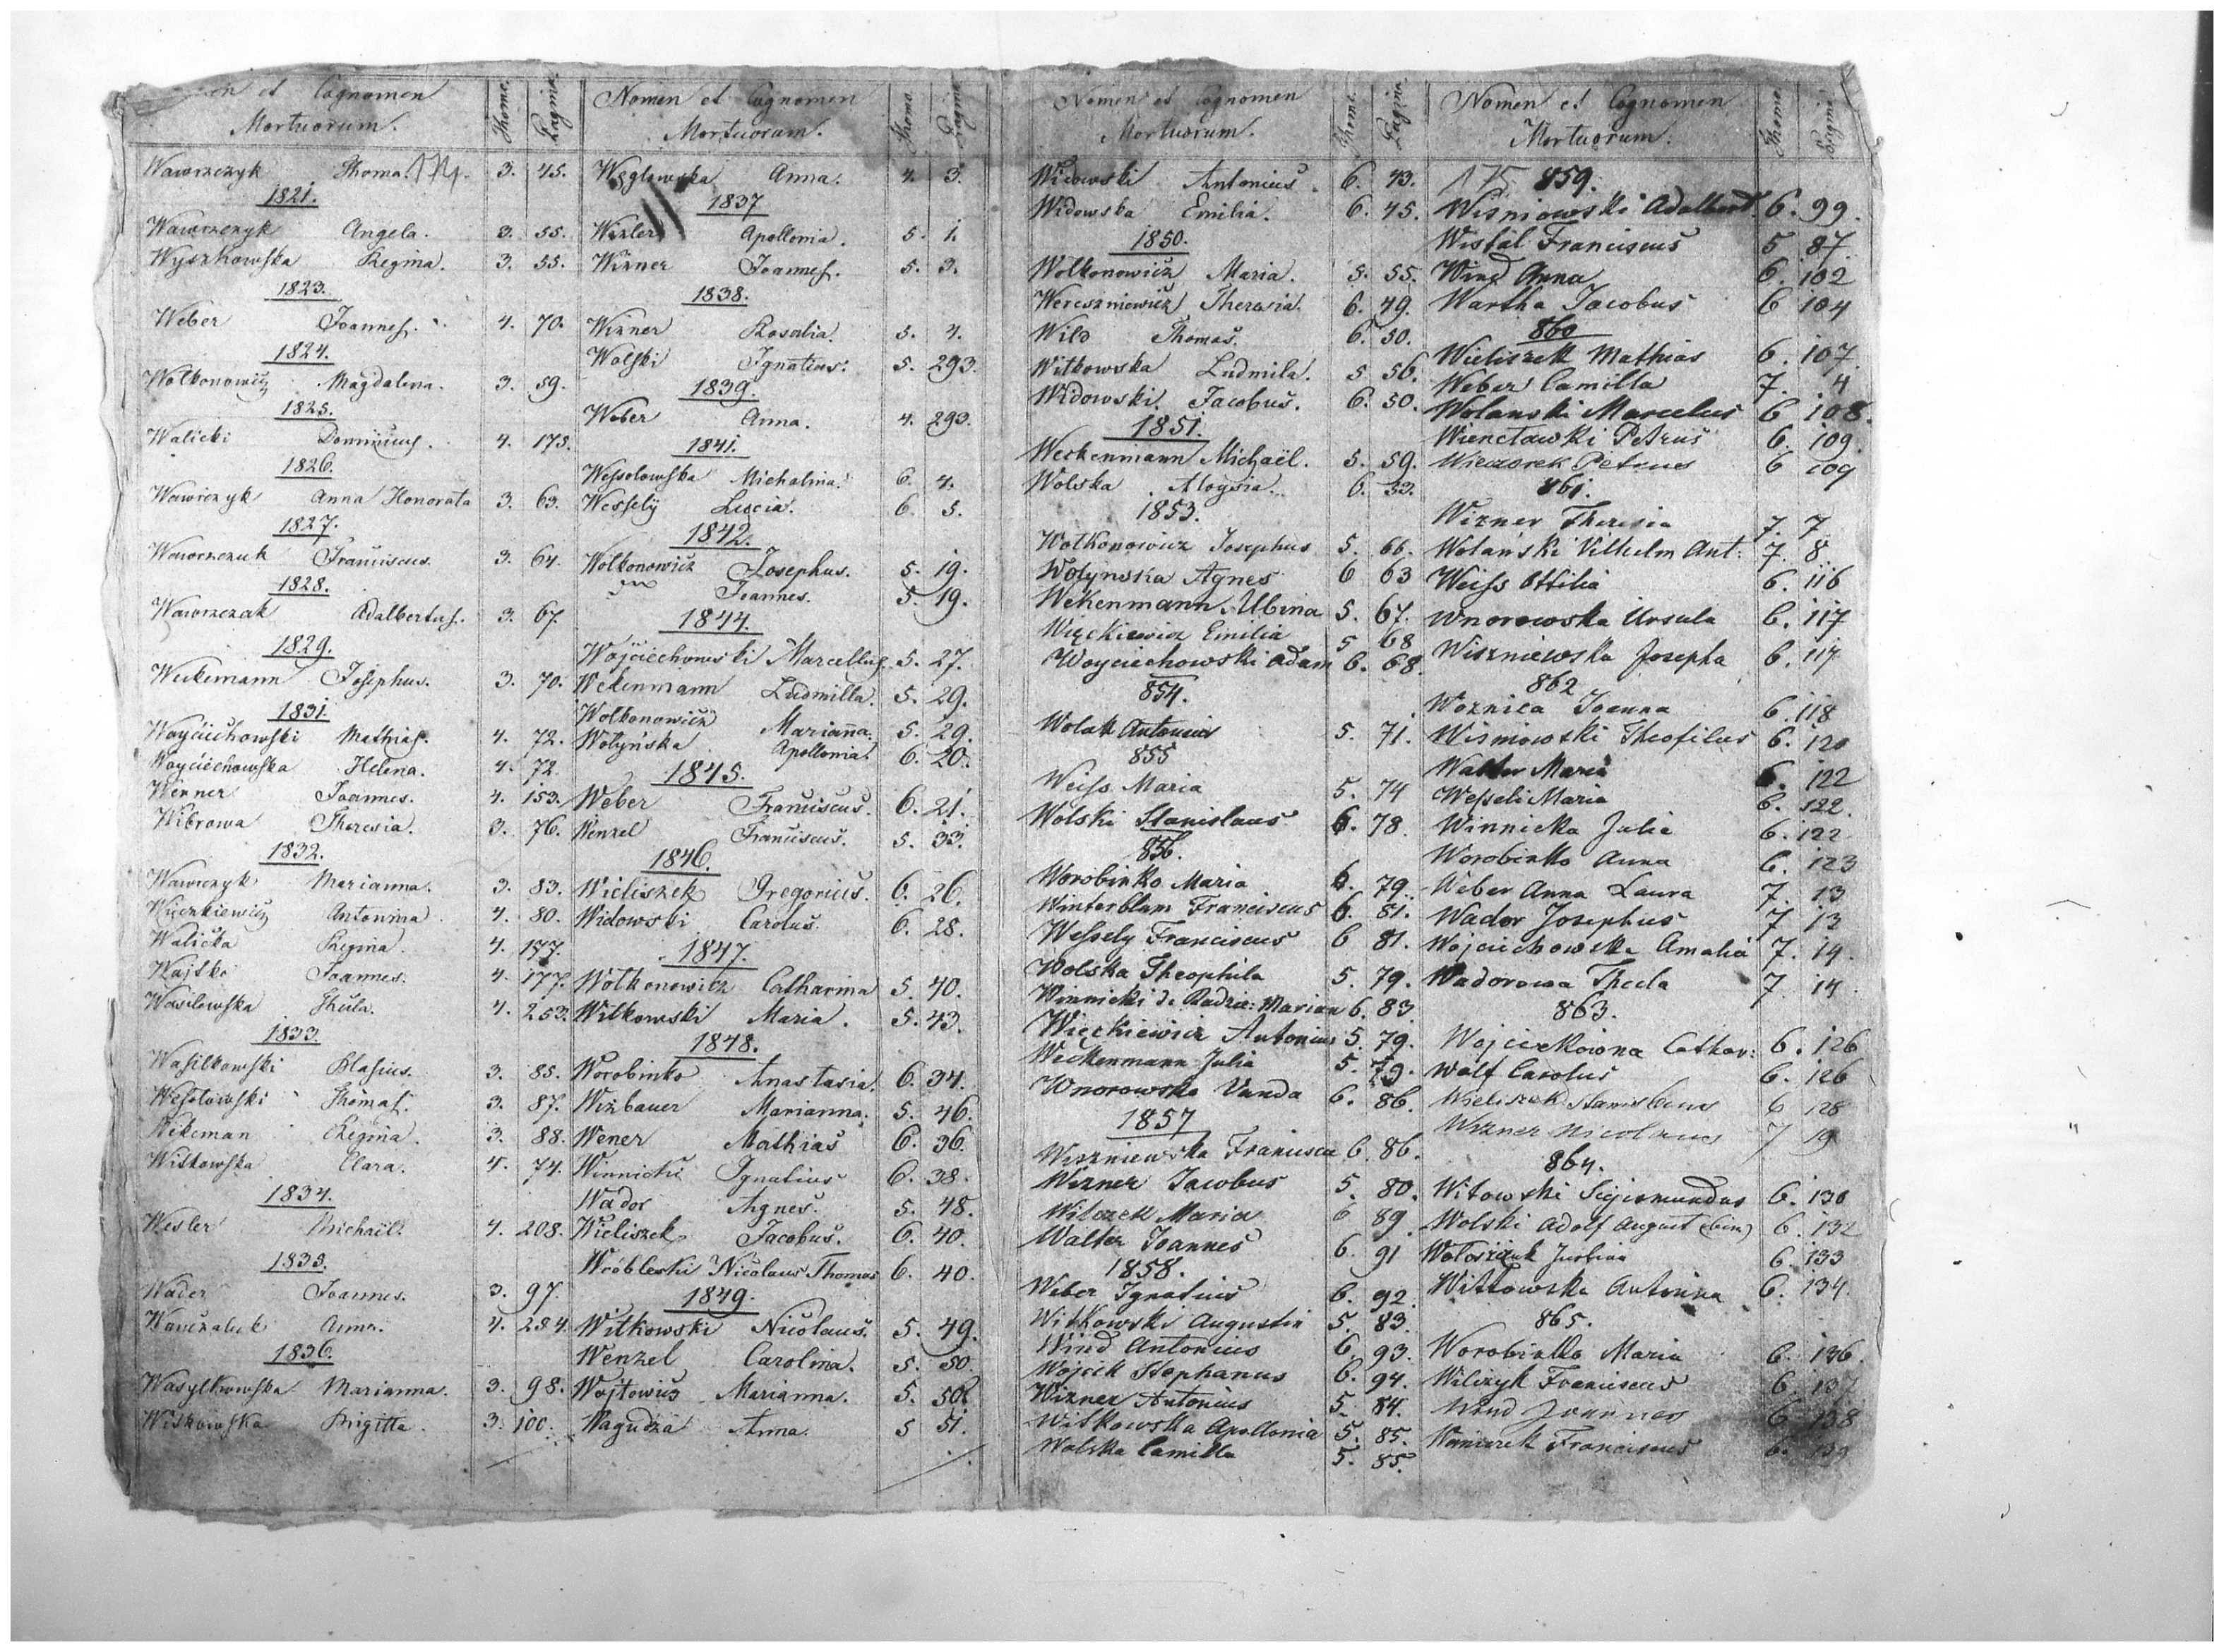 Nomen et Cognomen Mortuorum. Thome. Pagina.
Wawrzczyk Thoma. 174. 3. 45.
1821.
Wawrzczyk Angela. 3. 55.
Wyszkowska Regina. 3. 55.
1823.
Weber Joannes. 4. 70.
1824.
Wolkonowicz Magdalena. 3. 59.
1825.
Walicki Dominicus. 4. 175.
1826.
Wawrzyk Anna Honorata 3. 63.
1827.
Wawrzczuk Franciscus. 3. 64.
1828.
Wawrzczak Adalbertus. 3. 67.
1829.
Weckemann Josephus. 3. 70.
1831.
Woyciechowski Mathias. 4. 72.
Woyciechowska Helena. 4. 72.
Werner Joannes. 4. 153.
Wibrowa Theresia. 3. 76.
1832.
Wawrzyk Marianna. 3. 83.
Więckiewicz Antonina. 4. 80.
Walicka Regina. 4. 177.
Wajtko Joannes. 4. 177.
Wasilewska Thecla. 4. 253.
1833.
Wasilkowski Blasius. 3. 85.
Wesolowski Thomas. 3. 87.
Wekeman Regina. 3. 88.
Witkowska Clara. 4. 74.
1834.
Wesler Michaël. 4. 208.
1835.
Wader Joannes. 3. 97.
Anna. 4. 284.
1836.
Wasylkowska Marianna. 3. 98.
Witkowska Brigitta. 3. 100.
Nomen et Cognomen Mortuorum. Thome. Pagina.
Węglowska Anna. 4. 3.
1837
Wixler Apollonia. 5. 1.
Wixner Joannes. 5. 3.
1838.
Wixner Rosalia. 5. 4.
Wolski Ignatius. 5. 293.
1839.
Weber Anna. 4. 293.
1841.
Wessolowska Michalina. 6. 4.
Wessely Lucia. 6. 5.
1842.
Wolkonowicz Josephus. 5. 19.
Joannes. 5. 19.
1844.
Wojciechowski Marcellus. 5. 27.
Wekenmann Ludmilla. 5. 29.
Wolkonowicz Marianna. 5. 29.
Wolyńska Apollonia. 6. 20.
1845.
Weber Franciscus. 6. 21.
Wenzel Franciscus. 5. 33.
1846.
Wieliszek Gregorius. 6. 26.
Widowski Carolus. 6. 28.
1847.
Wolkonowicz Catharina 5. 40.
Witkowski Maria. 5. 43.
1848.
Worobinko Anastasia. 6. 34.
Wixbauer Marianna. 5. 46.
Wener Mathias 6. 36.
Winnicki Ignatius 6. 38.
Wador Agnes. 5. 48.
Wieliszek Jacobus. 6. 40.
Wróbleski Nicolaus Thomas 6. 40.
1849.
Witkowski Nicolaus. 5. 49.
Wenzel Carolina. 5. 50.
Wojtowicz Marianna. 5. 50.
Wagudza Anna. 5 51.
Nomen et Cognomen Mortuorum. Thome. Pagina.
Widowski Antonius. 6. 43.
Widowska Emilia. 6. 45.
1850.
Wolkonowicz Maria. 5. 55.
Wereszniewicz Theresia. 6. 49.
Wild Thomas. 6. 50.
Witkowska Ludmila. 5 56.
Widowski Jacobus. 6. 50.
1851.
Weckenmann Michaël. 5. 59.
Wolska Aloysia. 6. 53.
1853.
Wolkonowicz Josephus 5. 66.
Wolynska Agnes 6 63
Wekenmann Albina 5. 67.
Więckiewicz Emilia 5 68
Woyciechowski Adam 6. 68.
854.
Wolak Antonia 5. 71.
855
Weiss Maria 5. 74
Wolski Stanislaus 6. 78.
856.
Worobinko Maria 6. 79.
Winterblum Franciscus 6. 81.
Wessely Franciscus 6 81.
Wolska Theophila 5. 79.
Winnicki de Radze: Marian 6. 83.
Więckiewicz Antonius 5. 79.
Weckenmann Julia 5. 79.
Wnorowska Vanda 6. 86.
1857
Wiszniewska Francisca 6. 86.
Wizner Jacobus 5. 80.
Witczek Maria 6 89.
Walter Joannes 6. 91
1858.
Weber Ignatius 6. 92.
Witkowski Augustin 5. 83.
Wind Antonius 6 93.
Wojcik Stephanus 6. 94.
Wizner Antonius 5. 84.
Witkowska Apollonia 5. 85.
Wolska Camilla 5. 85.
Nomen et Cognomen Mortuorum. Thome. Pagina.
175 859.
Wisniowski Adalbert. 6. 99.
Wistal Franciscus 5 87
Wind Anna 6. 102
Wartha Jacobus 6 104
860
Wieliszek Mathias 6. 107
Weber Camilla 7. 4
Wolanski Marcelus 6 108.
Wienclawski Petrus 6. 109.
Wieczorek Petrus 6 109
861.
Wizner Theresia 7. 7
Wolański Vilhelm Ant: 7. 8
Weiss Ottilia 6. 116
Wnorowska Ursula 6. 117
Wiszniewska Josepha 6. 117
862
Woznica Joanna 6. 118
Wisniowski Theofilus 6. 120
Walter Maria 6. 122
Wesseli Maria 6. 122.
Winnicka Julia 6. 122
Worobinko Anna 6. 123
Weber Anna Laura 7. 13
Wador Josephus 7 13
Wojciechowska Amalia 7. 14.
Wadorowa Thecla 7. 14
863.
Wojcickowna Cathar: 6. 126
Wolf Carolus 6. 126
Wieliszek Stanislaus 6 128
Wizner Nicolaus 7 19
864.
Witowski Sigismundus 6. 130
Wolski Adolf August (bin) 6. 132
Woloszczuk Justina 6. 133
Witkowska Antonina 6. 134.
865.
Worobinko Maria 6. 136.
Wilczyk Franciscus 6. 137
Wind Joannes 6. 138
Franciscus 6. 139